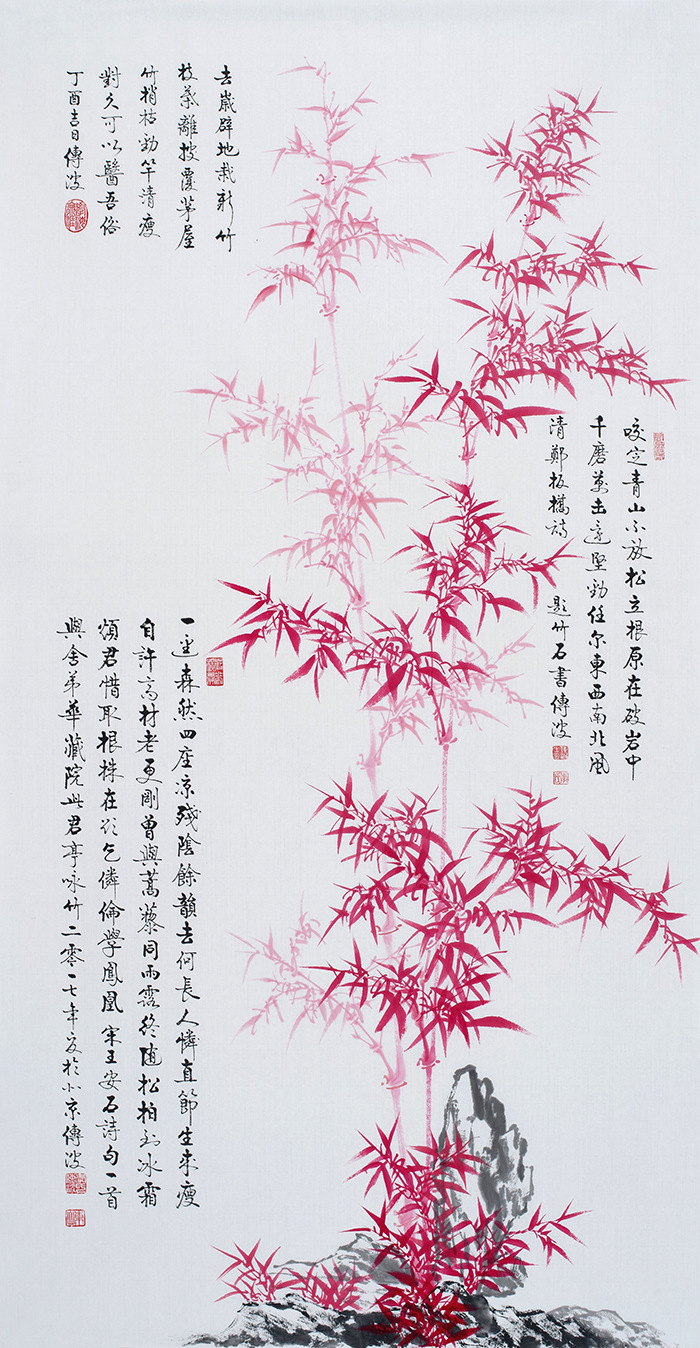 咬定青山不放松立根原在破岩中
千磨萬击還堅勁任尔東西南北风
清鄭板橋詩 题竹石書傳波
去歲辟地栽新竹
枝葉離披覆茅屋
竹梢枯勁竿清瘦
對久可以醫吾俗
丁酉吉日傳波
一逕森然四座凉殘陰餘韻去何長人憐直節生來瘦
自許高材老更剛曾與蒿藜同雨露終随松柏到冰霜
煩君惜取根株在欲乞憐倫學鳳凰宋王安石詩句一首
與舍弟華藏院此君亭咏竹二零一七年夏於北京傳波